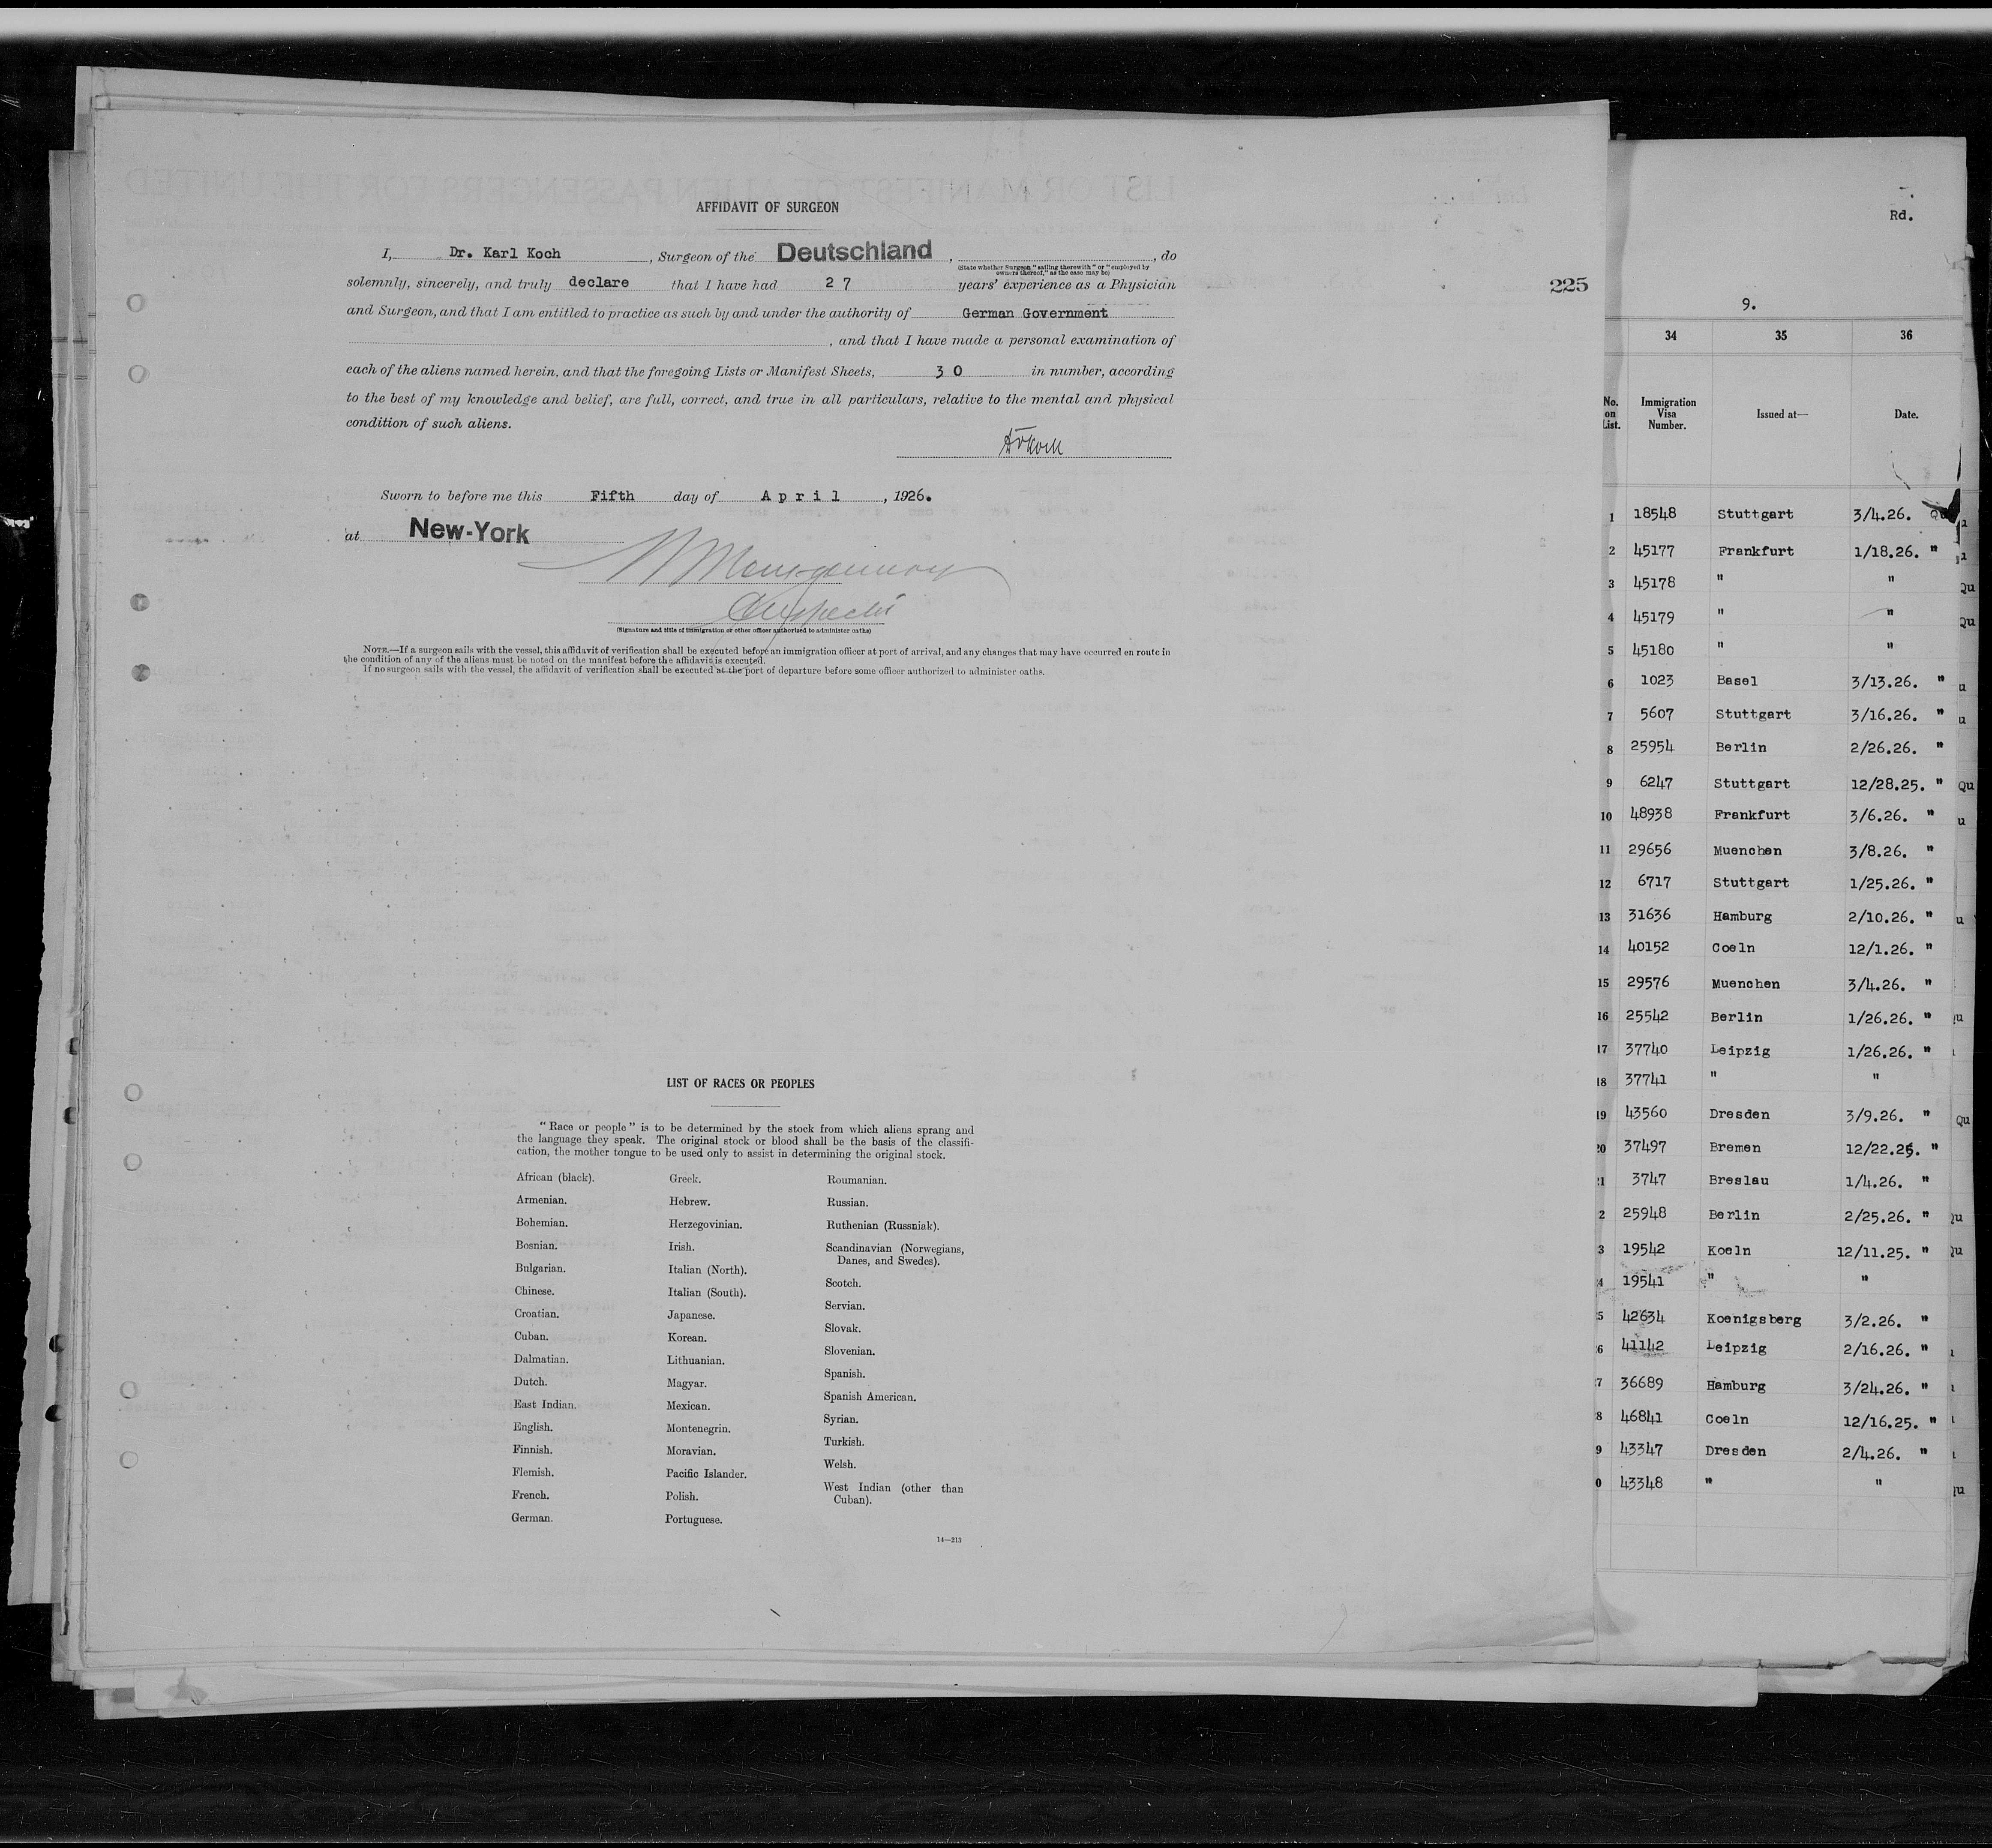 AFFIDAVIT OF SURGEON
I, Dr. Karl Koch, Surgeon of the Deutschland, , do
(State whether Surgeon "sailing therewith" or "employed by
owners thereof," as the case may be)
solemnly, sincerely, and truly declare that I have had 27 years' experience as a Physician
and Surgeon, and that I am entitled to practice as such by and under the authority of German Government
, and that I have made a personal examination of
each of the aliens named herein, and that the foregoing Lists or Manifest Sheets, 30 in number, according
to the best of my knowledge and belief, are full, correct, and true in all particulars, relative to the mental and physical
condition of such aliens.
Koch
Sworn to before me this Fifth day of April, 1926.
at New-York
(Signature and title of immigration or other officer authorized to administer oaths)
NOTE.—If a surgeon sails with the vessel, this affidavit of verification shall be executed before an immigration officer at port of arrival, and any changes that may have occurred en route in
the condition of any of the aliens must be noted on the manifest before the affidavit is executed.
If no surgeon sails with the vessel, the affidavit of verification shall be executed at the port of departure before some officer authorized to administer oaths.
225
LIST OF RACES OR PEOPLES
"Race or people" is to be determined by the stock from which aliens sprang and
the language they speak. The original stock or blood shall be the basis of the classifi-
cation, the mother tongue to be used only to assist in determining the original stock.
African (black).
Armenian.
Bohemian.
Bosnian.
Bulgarian.
Chinese.
Croatian.
Cuban.
Dalmatian.
Dutch.
East Indian.
English.
Finnish.
Flemish.
French.
German.
Greek.
Hebrew.
Herzegovinian.
Irish.
Italian (North).
Italian (South).
Japanese.
Korean.
Lithuanian.
Magyar.
Mexican.
Montenegrin.
Moravian.
Pacific Islander.
Polish.
Portuguese.
Roumanian.
Russian.
Ruthenian (Russniak).
Scandinavian (Norwegians,
Danes, and Swedes).
Scotch.
Servian.
Slovak.
Slovenian.
Spanish.
Spanish American.
Syrian.
Turkish.
Welsh.
West Indian (other than
Cuban).
14—213
Rd.
9.
34 35 36
No. on List. Immigration Visa Number. Issued at— Date.
1 18548 Stuttgart 3/4.26. Qu
2 45177 Frankfurt 1/18.26. "
3 45178 " "
4 45179 " "
5 45180 " "
6 1023 Basel 3/13.26. "
7 5607 Stuttgart 3/16.26. "
8 25954 Berlin 2/26.26. "
9 6247 Stuttgart 12/28.25. "
10 48938 Frankfurt 3/6.26. "
11 29656 Muenchen 3/8.26. "
12 6717 Stuttgart 1/25.26. "
13 31636 Hamburg 2/10.26. "
14 40152 Coeln 12/1.26. "
15 29576 Muenchen 3/4.26. "
16 25542 Berlin 1/26.26. "
17 37740 Leipzig 1/26.26. "
18 37741 " "
19 43560 Dresden 3/9.26. "
20 37497 Bremen 12/22.25. "
1 3747 Breslau 1/4.26. "
2 25948 Berlin 2/25.26. "
3 19542 Koeln 12/11.25. "
4 19541 " "
5 42634 Koenigsberg 3/2.26. "
6 41142 Leipzig 2/16.26. "
7 36689 Hamburg 3/24.26. "
8 46841 Coeln 12/16.25. "
9 43347 Dresden 2/4.26. "
0 43348 " "